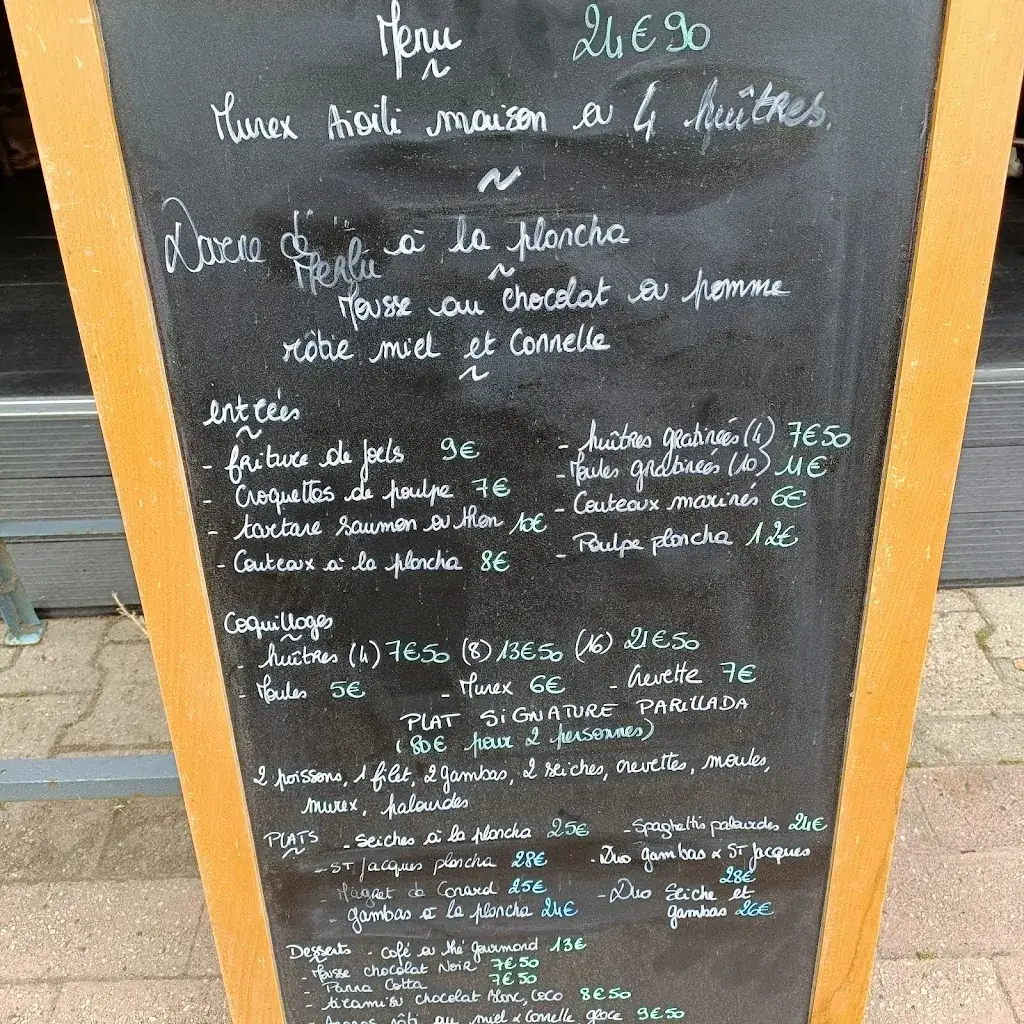 Menu 24€90
~
Murex Aïoili maison ou 4 huîtres.
~
Darne de Merlu à la plancha
~
Mousse au chocolat ou pomme
rôtie miel et Cannelle
~
entrées
- friture de joëls 9€
- Croquettes de poulpe 7€
- tartare saumon ou thon 10€
- Couteaux à la plancha 8€
- huîtres gratinées (4) 7€50
- Moules gratinées (10) 11€
- Couteaux marinés 6€
- Poulpe plancha 12€
Coquillages
- huîtres (4) 7€50 (8) 13€50 (16) 21€50
- Moules 5€ - Murex 6€ - Crevette 7€
PLAT SIGNATURE PARILLADA
(80€ pour 2 personnes)
2 poissons, 1 filet, 2 gambas, 2 seiches, crevettes, moules,
murex, palourdes
PLATS
- seiches à la plancha 25€
- ST Jacques plancha 28€
- Magret de Canard 25€
- gambas à la plancha 24€
- Spaghettis palourdes 24€
- Duo gambas & ST Jacques
28€
- Duo Seiche et
gambas 26€
Desserts - café ou thé gourmond 13€
- Mousse chocolat Noir 7€50
- Panna Cotta 7€50
- tiramisu chocolat Blanc, coco 8€50
- Ananas rôti au miel & Cannelle glace 9€50